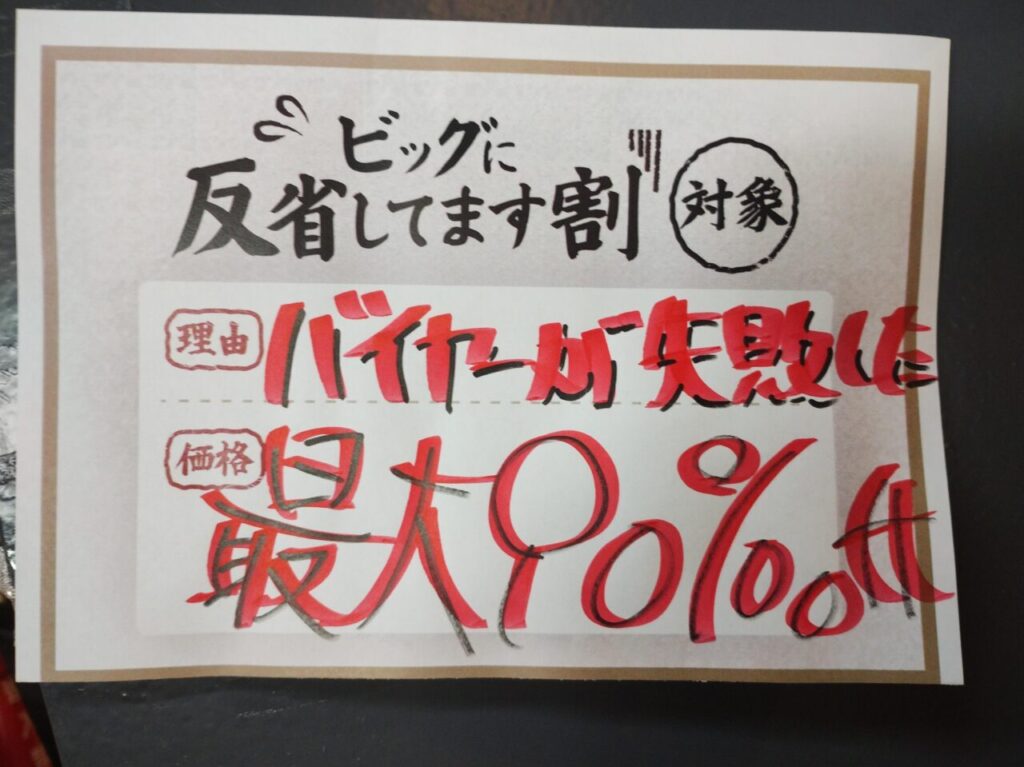 ビッグに
反省してます割 対象
理由 バイヤーが失敗した
価格 最大90%off